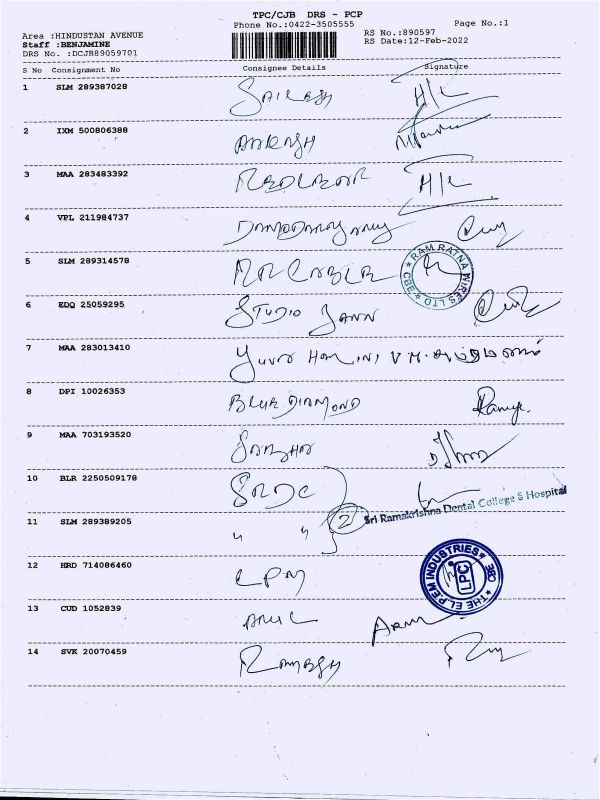 TPC/CJB DRS - PCP
Phone No.:0422-3505555 Page No.:1
Area :HINDUSTAN AVENUE RS No.:890597
Staff :BENJAMINE RS Date:12-Feb-2022
DRS No. :DCJB89059701
S No Consignment No Consignee Details Signature
1 SLM 289387028 SAILESH H/L
2 IXM 500806388
3 MAA 283483392 H/L
4 VPL 211984737
5 SLM 289314578 MR CABLE RAM RATNA WIRES LTD CBE
6 EDQ 25059295 STUDIO
7 MAA 283013410
8 DPI 10026353 BLUE DIAMOND Ramya
9 MAA 703193520
10 BLR 2250509178 SRDC
11 SLM 289389205 " " 2 Sri Ramakrishna Dental College & Hospital
12 HRD 714086460 LPM THE EL P EM INDUSTRIES CBE LPC
13 CUD 1052839 ARUL
14 SVK 20070459 RAMESH